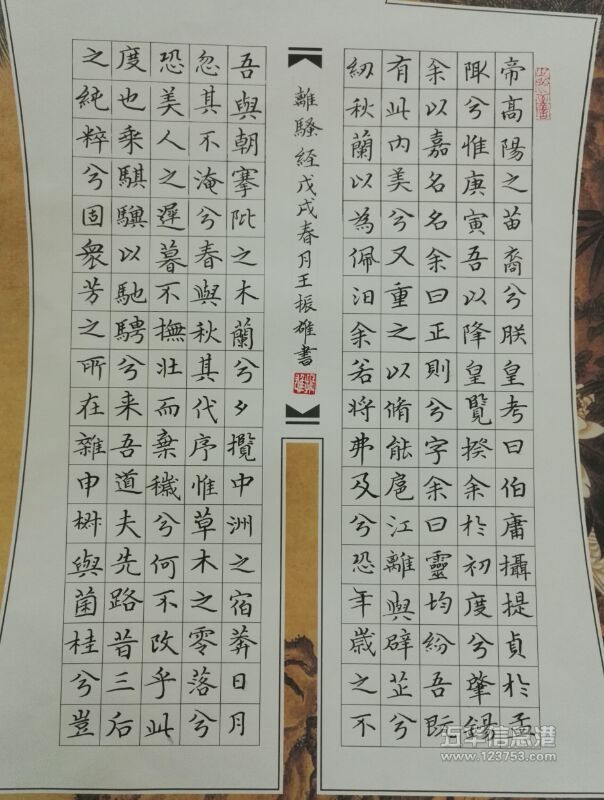 帝高陽之苗裔兮朕皇考曰伯庸攝提貞於孟
陬兮惟庚寅吾以降皇覽揆余於初度兮肇錫
余以嘉名名余曰正則兮字余曰靈均紛吾既
有此內美兮又重之以脩能扈江離與辟芷兮
紉秋蘭以為佩汨余若將弗及兮恐年歲之不
離騷經戊戌春月王振雄書
吾與朝搴阰之木蘭兮夕攬中洲之宿莽日月
忽其不淹兮春與秋其代序惟草木之零落兮
恐美人之遲暮不撫壯而棄穢兮何不改乎此
度也乘騏驥以馳騁兮来吾道夫先路昔三后
之純粹兮固衆芳之所在雜申椒與菌桂兮豈
五华信息港
www.123753.com